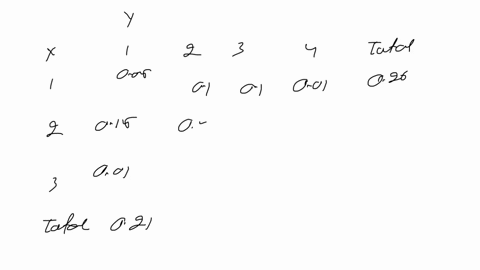 Y
X 1 2 3 4 Total
1 0.05 0.1 0.1 0.01 0.26
2 0.15 0.
3 0.01
Total 0.21